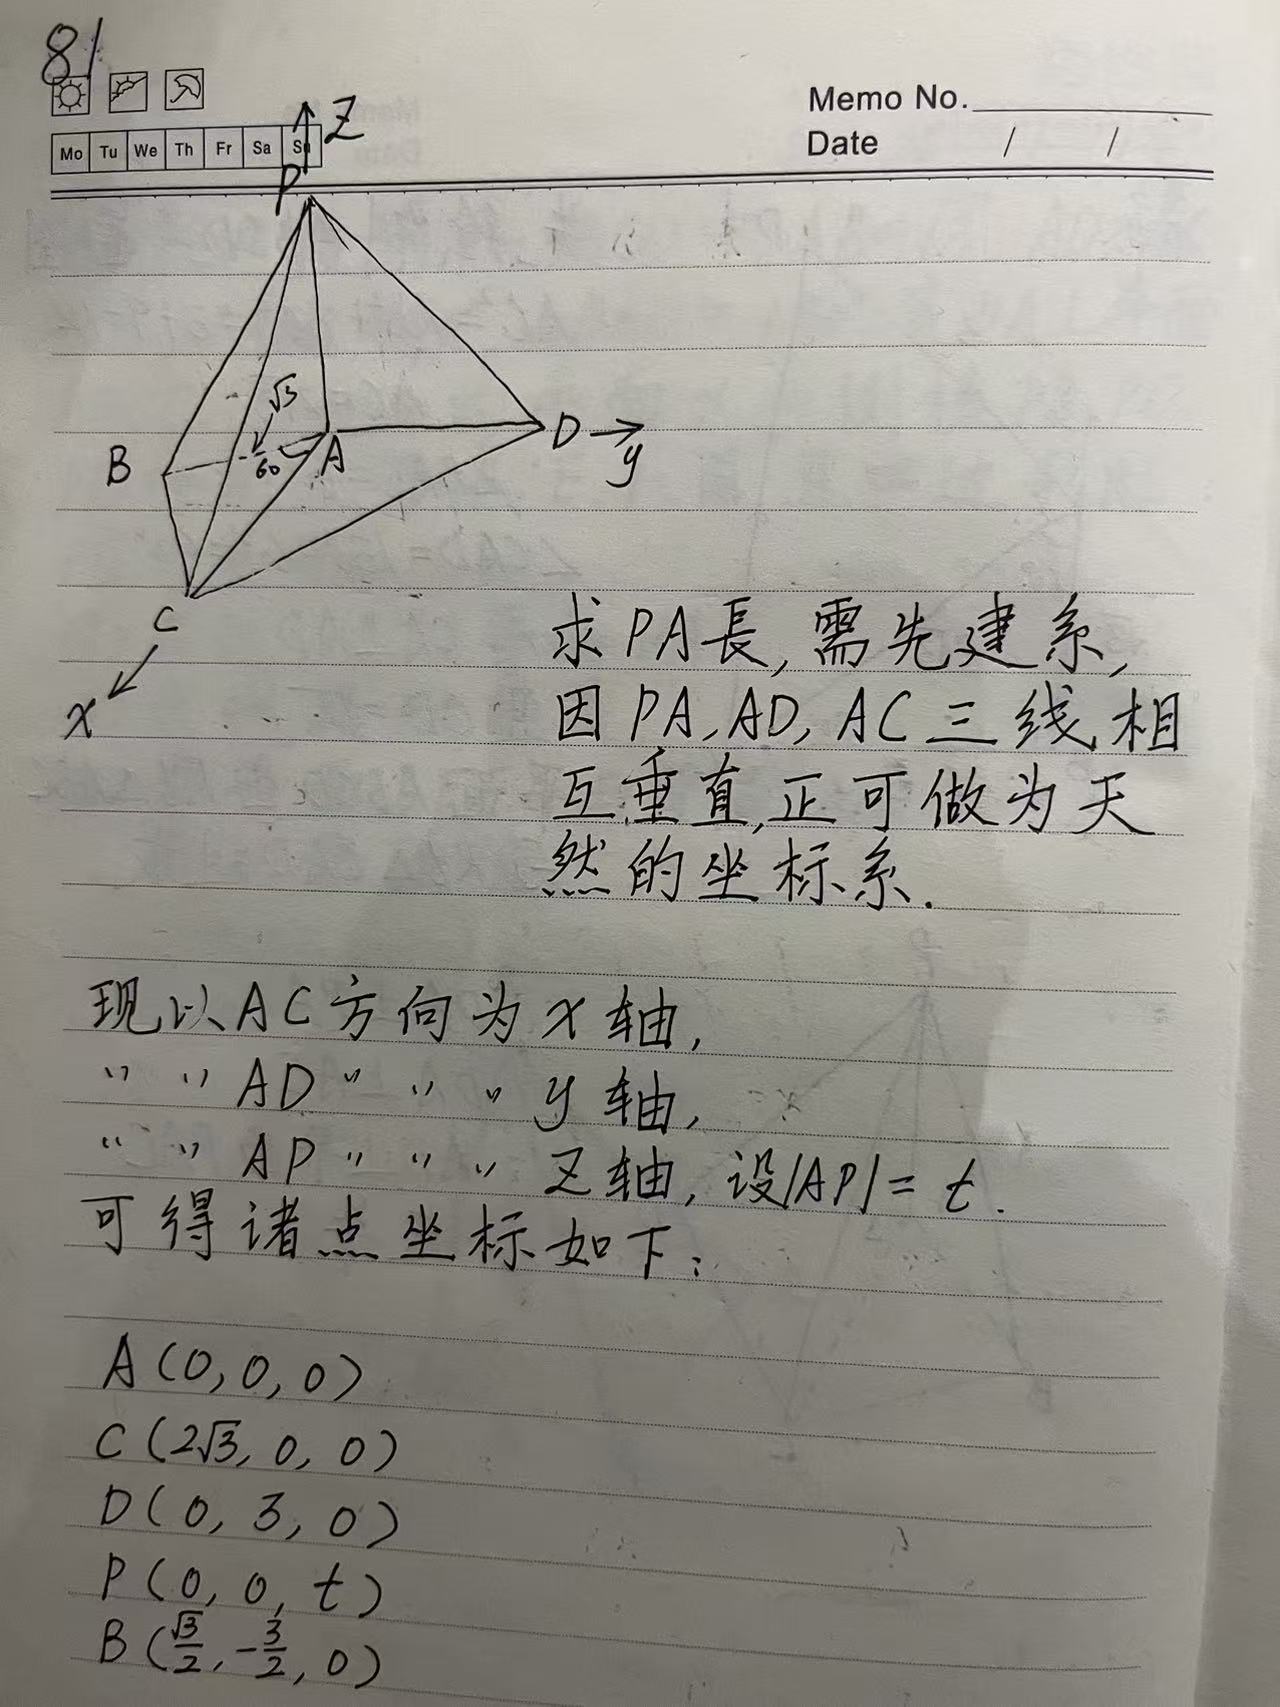 81
Memo No.
Date / /
Mo Tu We Th Fr Sa Su
Z
P
√3
B
60
A
D
y
C
x
求PA長,需先建系,
因PA,AD,AC三线相
互垂直,正可做为天
然的坐标系.
现以AC方向为x轴,
" " AD " " " y轴,
" " AP " " " Z轴,设|AP|=t.
可得诸点坐标如下:
A(0,0,0)
C(2√3,0,0)
D(0,3,0)
P(0,0,t)
B(√3/2,-3/2,0)